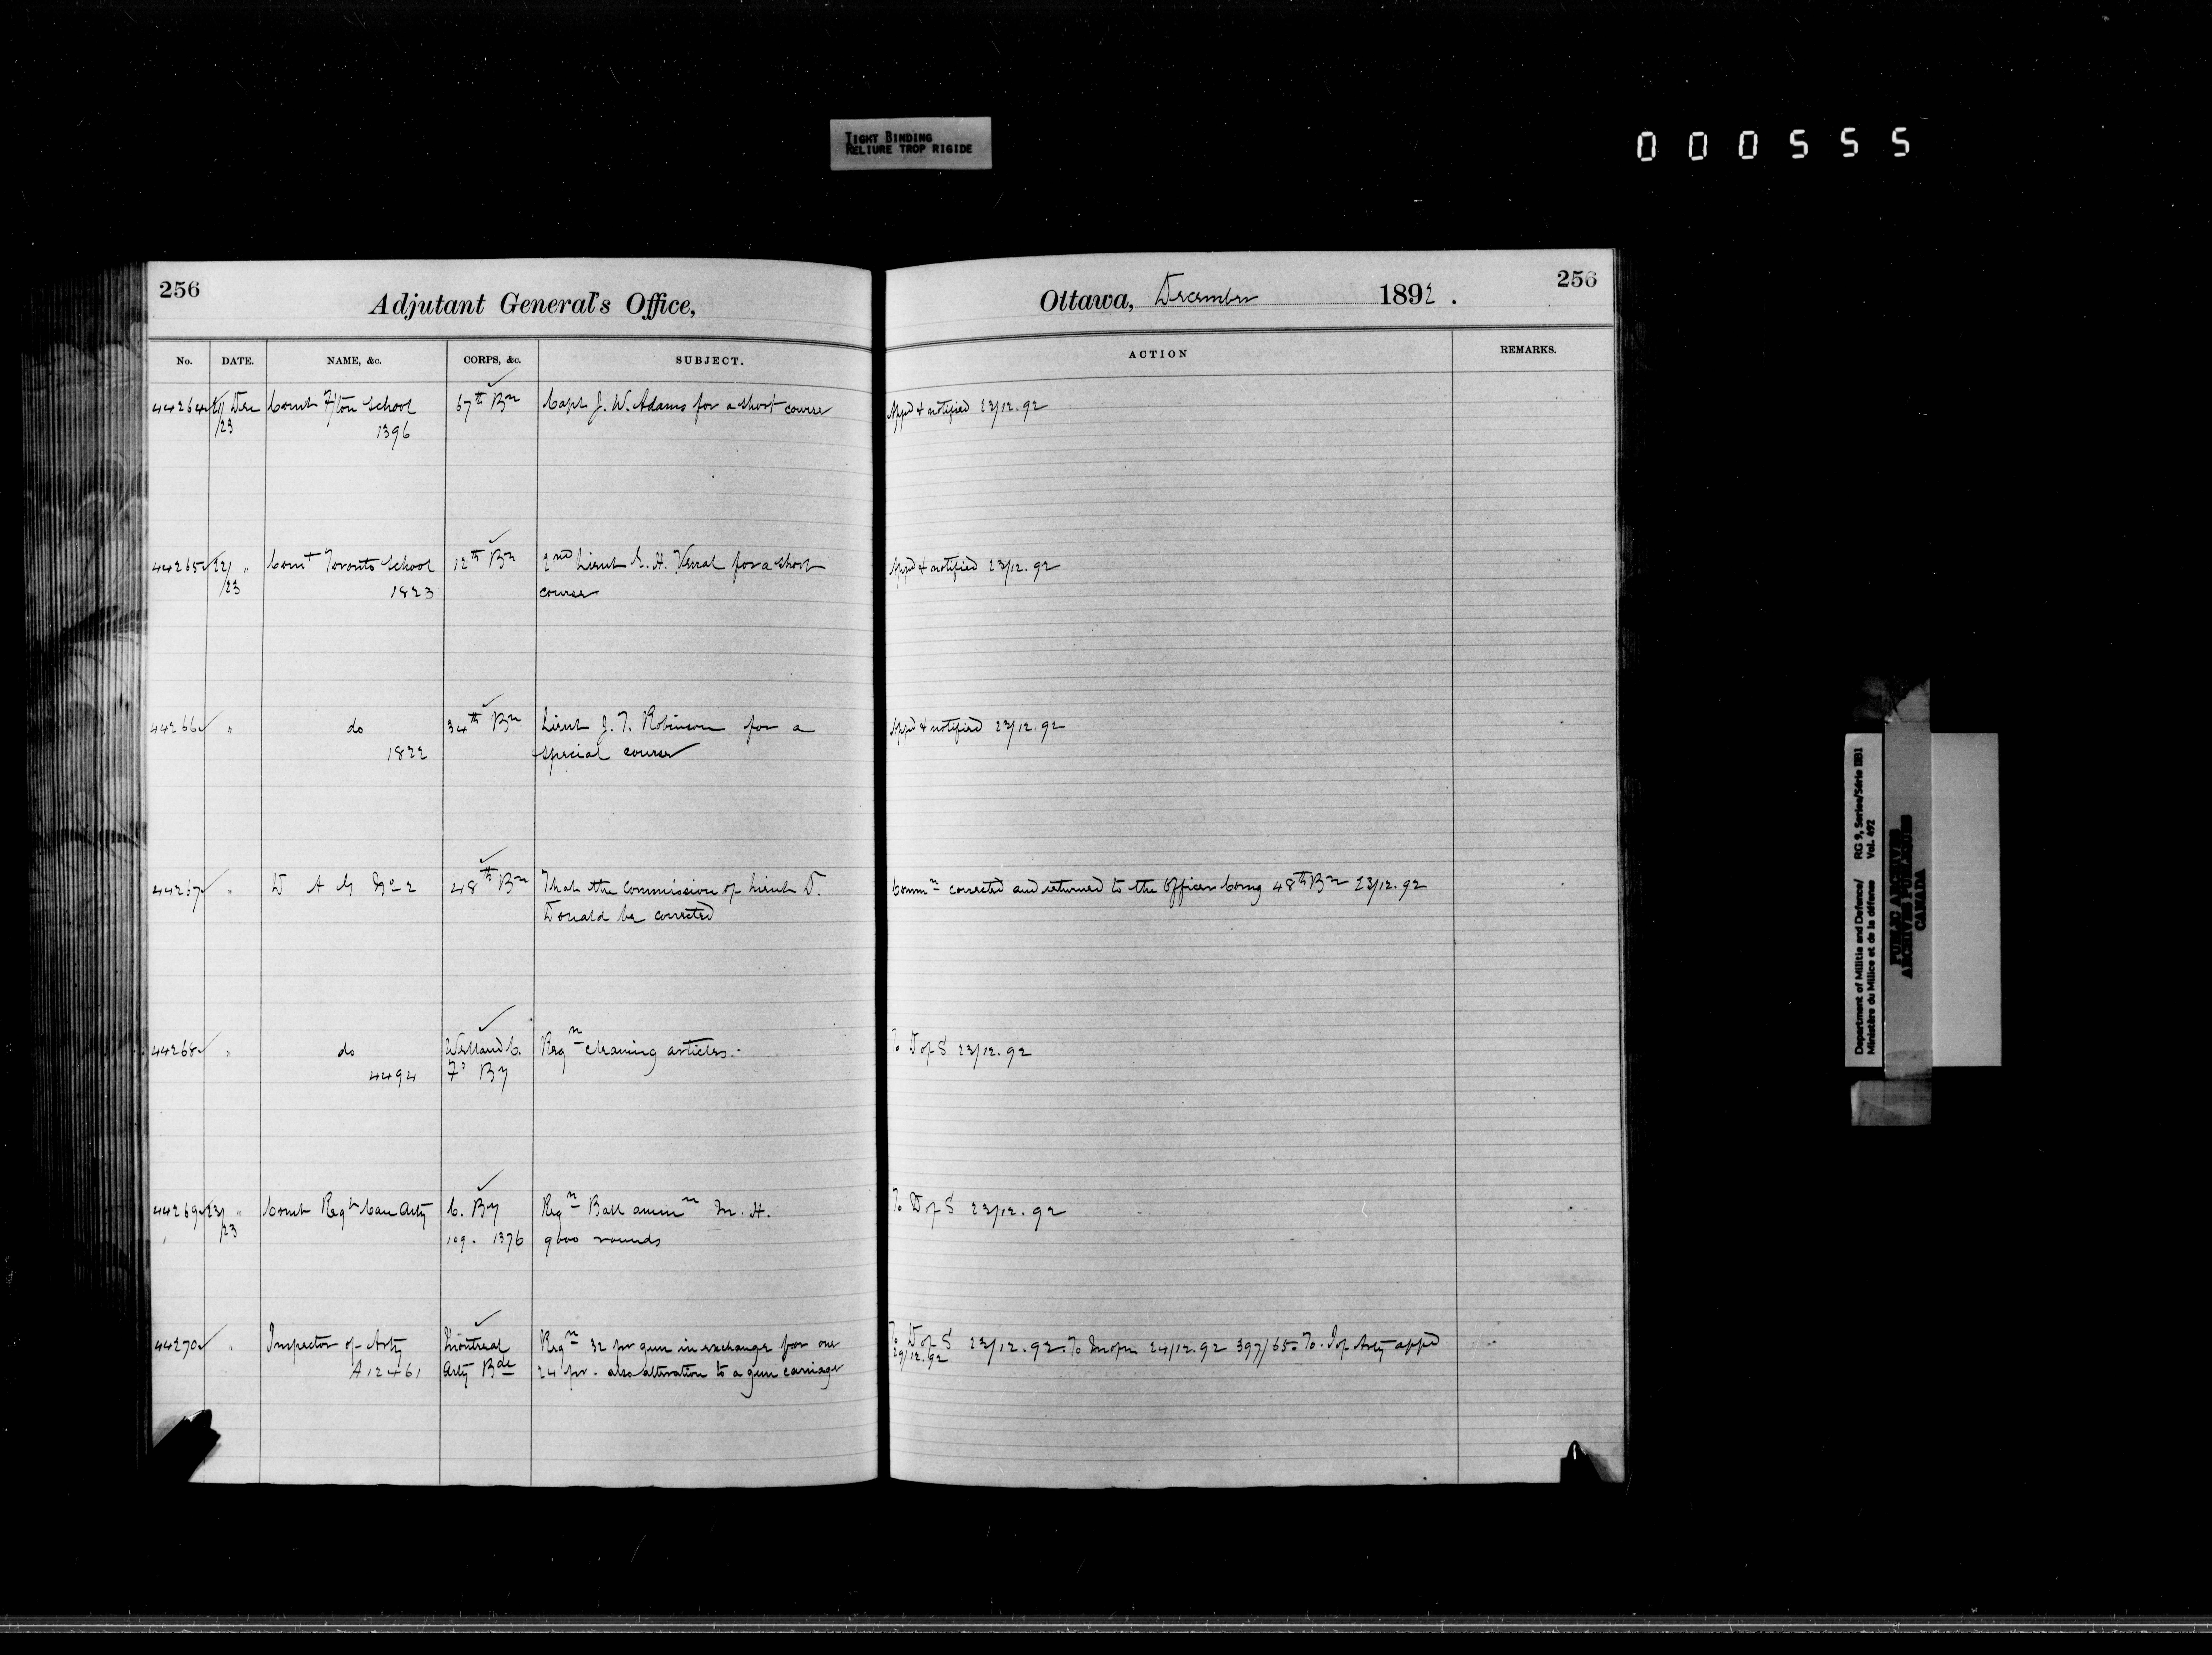 TIGHT BINDING
RELIURE TROP RIGIDE
000555
256
Adjutant General's Office,
Ottawa, December 1892.
256
No. DATE. NAME, &c. CORPS, &c. SUBJECT. ACTION REMARKS.
44264 Dec Comt F/ton School 67th Bn Capt J. W. Adams for a short course Appd & notified 23/12.92
/23 1396
44265 22/ " Comt Toronto School 12th Bn 2nd Lieut H. for a short Appd & notified 23/12.92
/23 1823 course
44266 " do 34th Bn Lieut J. T. Robinson for a Appd & notified 23/12.92
1822 special course
44267 " D A G No 2 48th Bn That the commission of Lieut D. Commn corrected and returned to the Officer Comg 48th Bn 23/12.92
Donald be corrected
44268 " do Welland C. Reqn cleaning articles.- To D of S 23/12.92
4494 Fd By
44269 23/ " Comt Regt Can Arty C. By Reqn Ball ammn M.H. To D of S 23/12.92
/23 109. 1376 9000 rounds
44270 " Inspector of Arty Montreal Reqn 32 pr gun in exchange for one To D of S 23/12.92. To 24/12.92 397/65. To. I of Arty appd
A12461 Arty Bde 24 pr. also alteration to a gun carriage 29/12.92
Department of Militia and Defence/ RG 9, Series/Série IIB1
Ministère du Milice et de la défense Vol. 492
PUBLIC ARCHIVES
ARCHIVES PUBLIQUES
CANADA